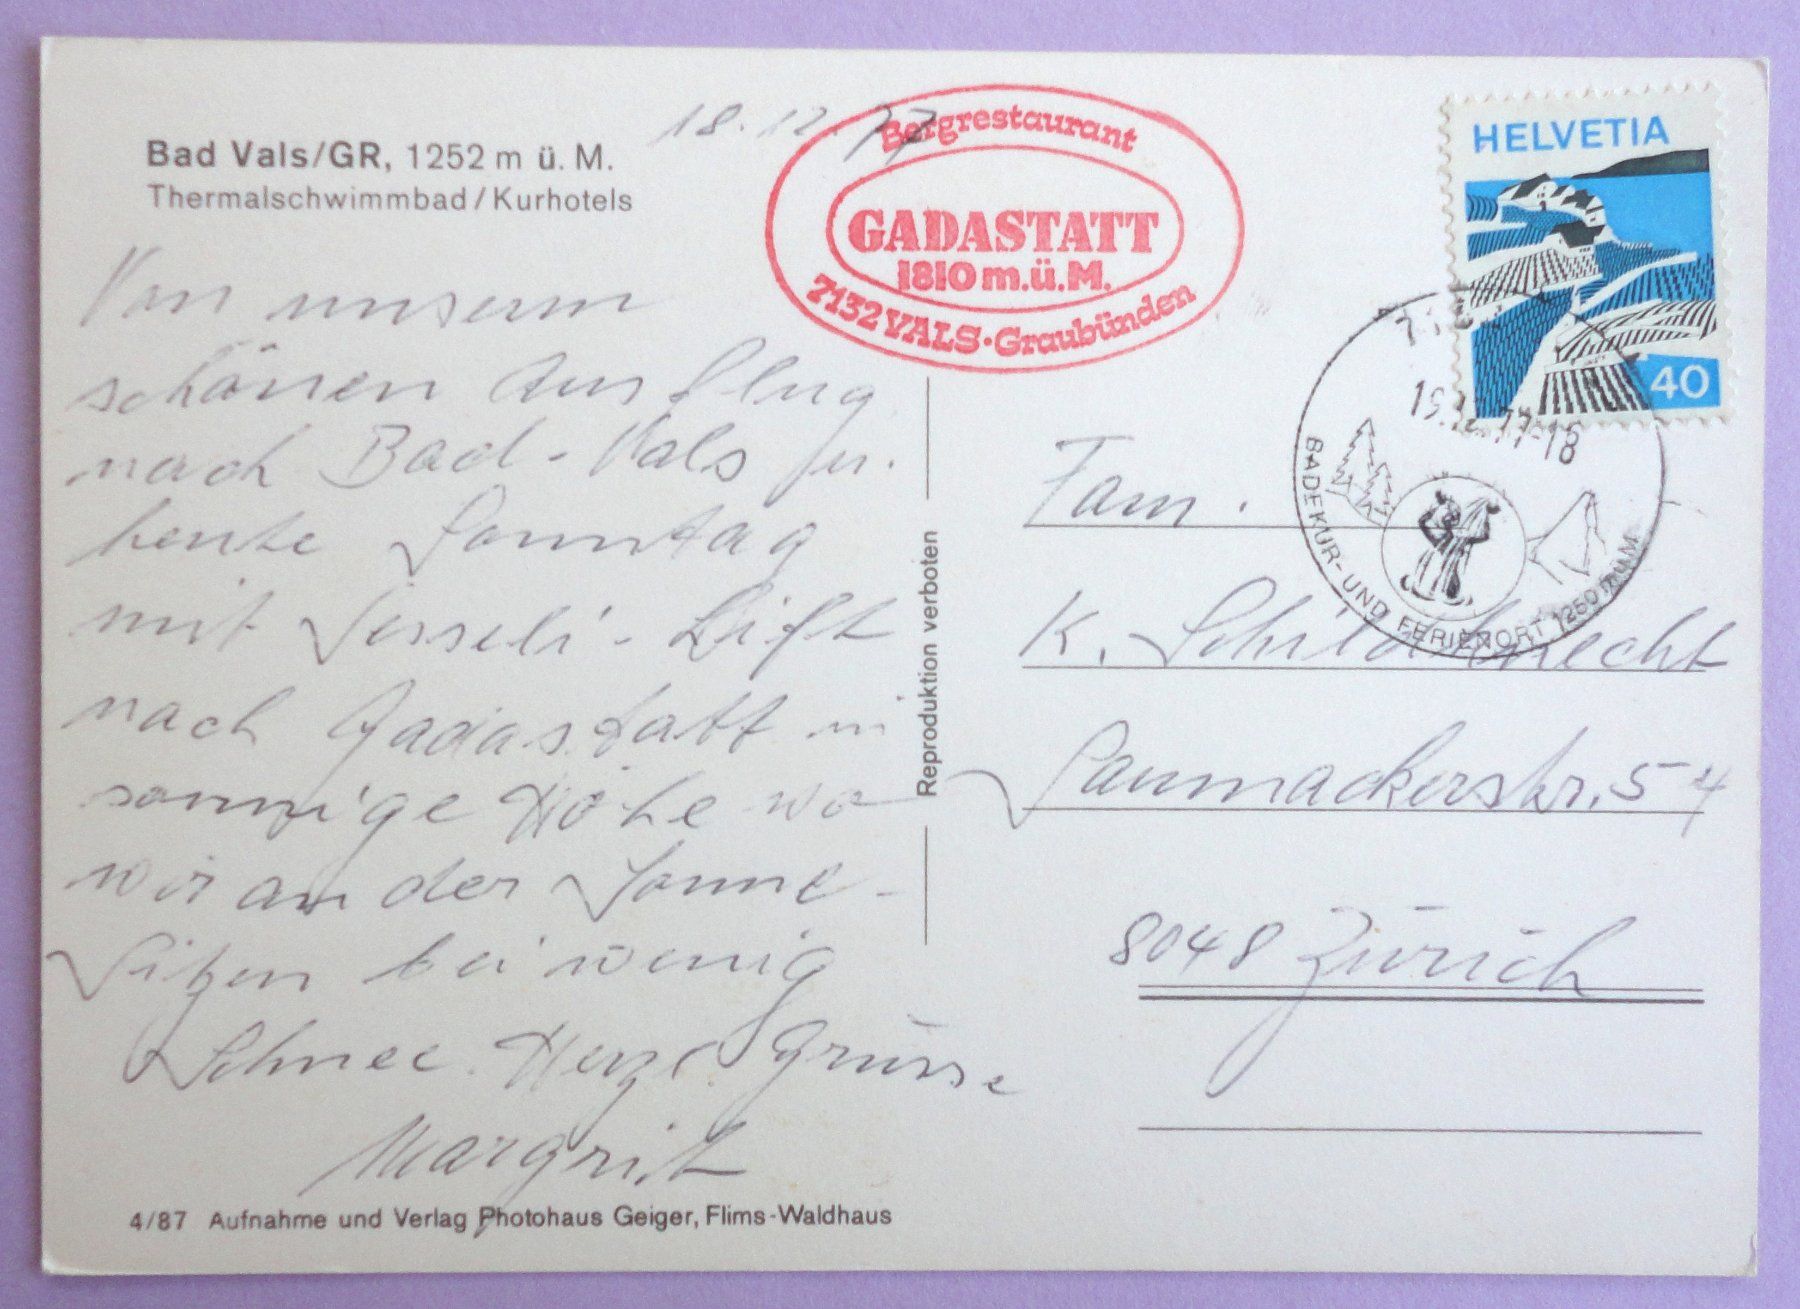 Bad Vals/GR, 1252 m ü. M.
Thermalschwimmbad/Kurhotels
18.12.77
Bergrestaurant
GADASTATT
1810 m.ü.M.
7132 VALS·Graubünden
HELVETIA
40
BADEKUR- UND FERIENORT 1250 M.Ü.M
Von unserm
schönen Ausflug
nach Bad-Vals
heute Sonntag
mit Sesseli-Lift
nach Gadastatt in
sonnige Höhe wo
wir an der Sonne
Sitzen bei wenig
Schnee. Herzl. Grüsse
Margrit
Reproduktion verboten
Fam.
K. Schildknecht
Saumackerstr. 54
8048 Zürich
4/87 Aufnahme und Verlag Photohaus Geiger, Flims-Waldhaus